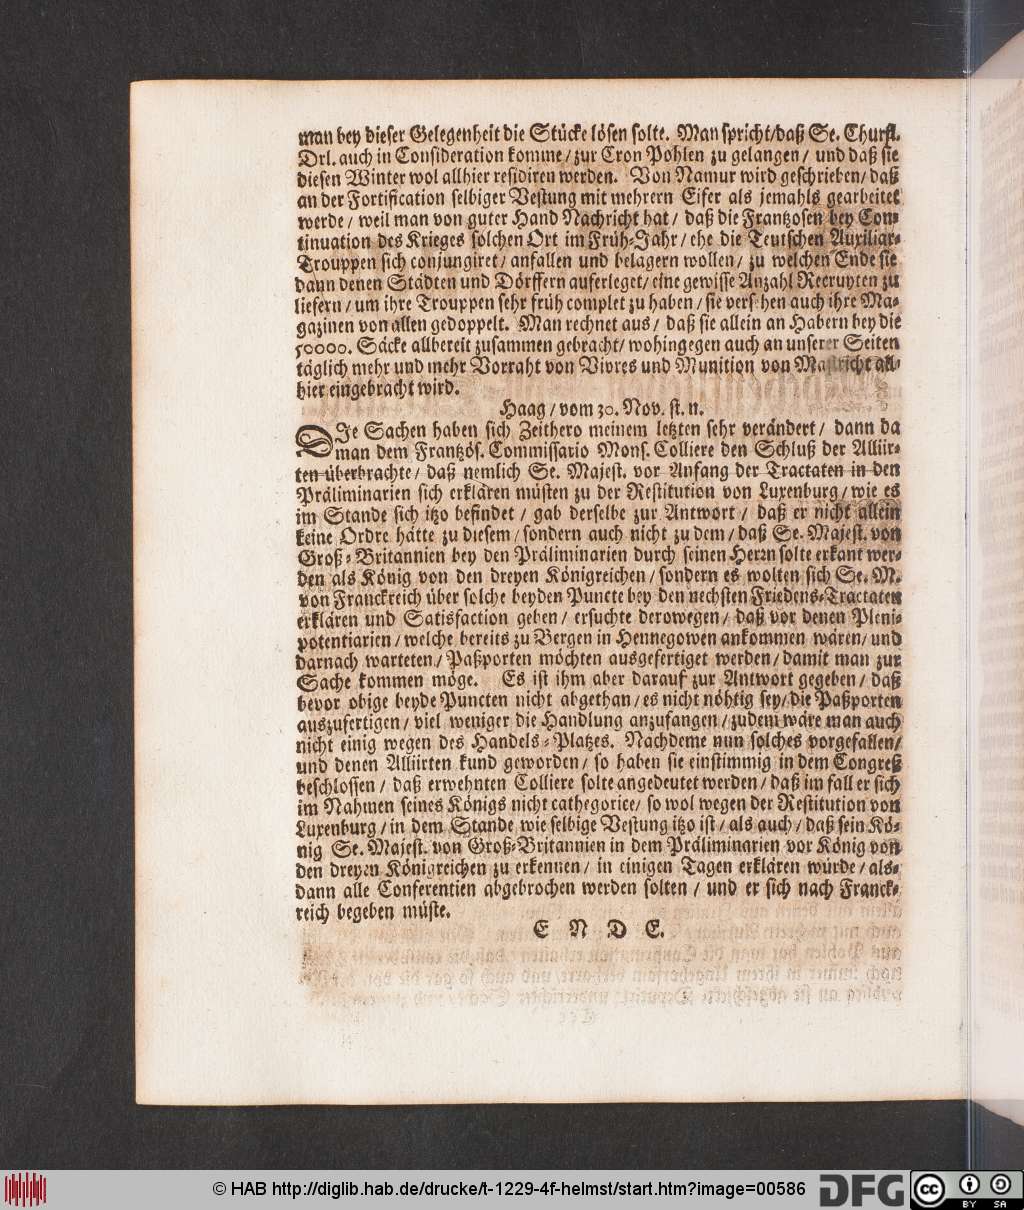 man bey dieser Gelegenheit die Stücke lösen solte. Man spricht/daß Se. Churfl.
Drl. auch in Consideration komme/ zur Cron Pohlen zu gelangen/ und daß sie
diesen Winter wol allhier residiren werden. Von Namur wird geschrieben/ daß
an der Fortification selbiger Vestung mit mehrern Eifer als jemahls gearbeitet
werde/ weil man von guter Hand Nachricht hat/ daß die Frantzosen bey Con-
tinuation des Krieges solchen Ort im Früh-Jahr/ ehe die Teutschen Auxiliar-
Trouppen sich conjungiret/ anfallen und belagern wollen/ zu welchen Ende sie
dann denen Städten und Dörffern auferleget/ eine gewisse Anzahl Recruyten zu
liefern/ um ihre Trouppen sehr früh complet zu haben/ sie versehen auch ihre Ma-
gazinen von allen gedoppelt. Man rechnet aus/ daß sie allein an Habern bey die
50000. Säcke allbereit zusammen gebracht/ wohingegen auch an unserer Seiten
täglich mehr und mehr Vorraht von Vivres und Munition von Mastricht all-
hier eingebracht wird.
Haag/ vom 30. Nov. st. n.
DIe Sachen haben sich Zeithero meinem letzten sehr verändert/ dann da
man dem Frantzös. Commissario Mons. Colliere den Schluß der Alliir-
ten überbrachte/ daß nemlich Se. Majest. vor Anfang der Tractaten in den
Präliminarien sich erklären müsten zu der Restitution von Luxenburg/ wie es
im Stande sich itzo befindet/ gab derselbe zur Antwort/ daß er nicht allein
keine Ordre hätte zu diesem/ sondern auch nicht zu dem/ daß Se. Majest. von
Groß-Britannien bey den Präliminarien durch seinen Herrn solte erkant wer-
den als König von den dreyen Königreichen/ sondern es wolten sich Se. M.
von Franckreich über solche beyden Puncte bey den nechsten Friedens-Tractaten
erklären und Satisfaction geben/ ersuchte derowegen/ daß vor denen Pleni-
potentiarien/ welche bereits zu Bergen in Hennegowen ankommen wären/ und
darnach warteten/ Paßporten möchten ausgefertiget werden/ damit man zur
Sache kommen möge. Es ist ihm aber darauf zur Antwort gegeben/ daß
bevor obige beyde Puncten nicht abgethan/ es nicht nöhtig sey/ die Paßporten
auszufertigen/ viel weniger die Handlung anzufangen/ zudem wäre man auch
nicht einig wegen des Handels-Platzes. Nachdeme nun solches vorgefallen/
und denen Alliirten kund geworden/ so haben sie einstimmig in dem Congreß
beschlossen/ daß erwehnten Colliere solte angedeutet werden/ daß im fall er sich
im Nahmen seines Königs nicht cathegorice/ so wol wegen der Restitution von
Luxenburg/ in dem Stande wie selbige Vestung itzo ist/ als auch/ daß sein Kö-
nig Se. Majest. von Groß-Britannien in dem Präliminarien vor König von
den dreyen Königreichen zu erkennen/ in einigen Tagen erklären würde/ als-
dann alle Conferentien abgebrochen werden solten/ und er sich nach Franck-
reich begeben müste.
E N D E.
© HAB http://diglib.hab.de/drucke/t-1229-4f-helmst/start.htm?image=00586 DFG cc BY SA